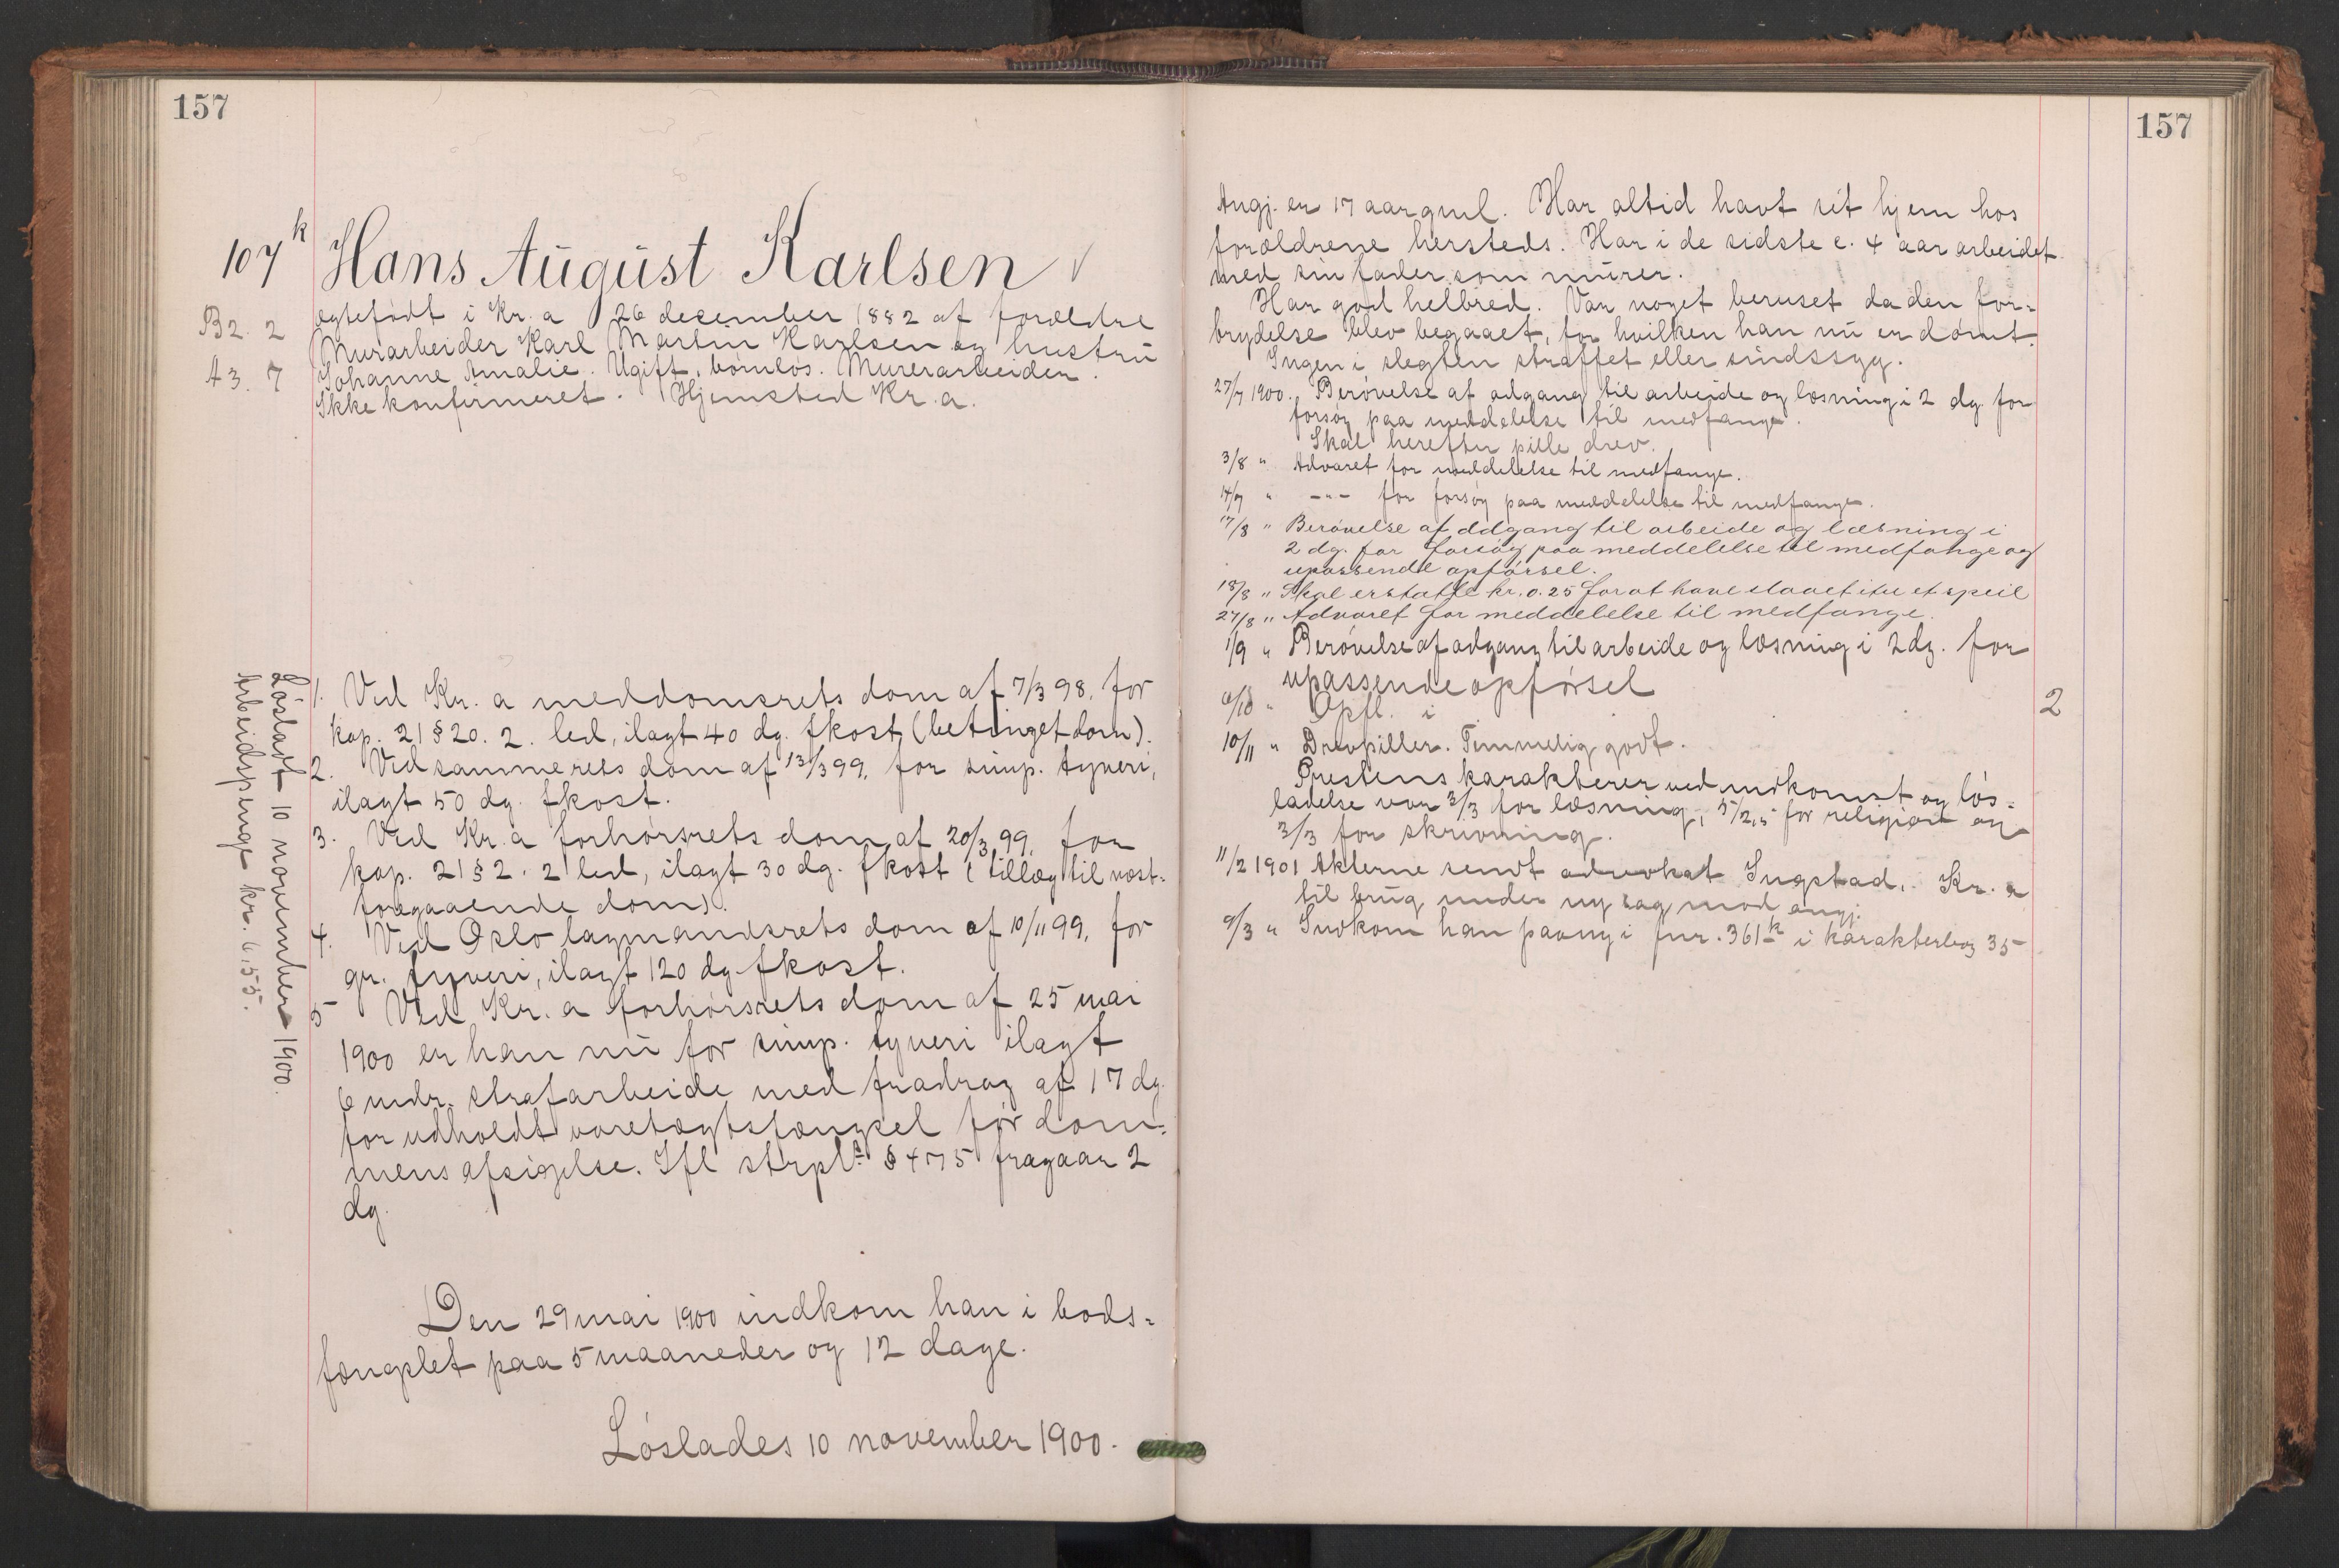 157
107 k
Hans August Karlsen
B2. 2
A3. 7
ægtefødt i Kr.a 26 december 1882 af forældre
Murarbeider Karl Martin Karlsen og hustru
Johanne Amalie. Ugift, børnløs. Murerarbeider.
Ikke konfirmeret. Hjemsted Kr.a.
1. Ved Kr.a meddomsrets dom af 7/3 98. for
kap. 21 § 20. 2. led, ilagt 40 dg. fkost (betinget dom).
2. Ved samme rets dom af 13/3 99, for simp. tyveri,
ilagt 50 dg. fkost.
3. Ved Kr.a forhørsrets dom af 20/3 99. for
kap. 21 § 2. 2 led, ilagt 30 dg. fkost (tillæg til næst-
foregaaende dom).
4. Ved Oslo lagmandsrets dom af 10/11 99, for
gr. tyveri, ilagt 120 dg fkost.
5 Ved Kr.a forhørsrets dom af 25 mai
1900 er han nu for simp. tyveri ilagt
6 mdr. strafarbeide med fradrag af 17 dg.
for udholdt varetægtsfængsel før dom-
mens afsigelse. Ifl strpl. § 475 fragaar 2
dg.
Løsladt 10 november 1900.
Arbeidspenge kr. 6,55.
Den 29 mai 1900 indkom han i bods-
fængslet paa 5 maaneder og 12 dage.
Løslades 10 november 1900.
157
Angj. er 17 aar gml. Har altid havt sit hjem hos
forældrene hersteds. Har i de sidste c. 4 aar arbeidet
med sin fader som murer.
Har god helbred. Var noget beruset da den for-
brydelse blev begaaet, for hvilken han nu er dømt.
Ingen i slegten straffet eller sindssyg.
27/7 1900. Berøvelse af adgang til arbeide og læsning i 2 dg. for
forsøg paa meddelelse til medfange.
Skal herefter pille drev.
3/8 " Advaret for meddelelse til medfange.
14/7 " -"- for forsøg paa meddelelse til medfange.
17/8 " Berøvelse af adgang til arbeide og læsning i
2 dg. for forsøg paa meddelelse til medfange og
upassende opførsel.
18/8 " Skal erstatte kr. 0.25 for at have slaaet itu et speil
27/8 " Advaret for meddelelse til medfange.
1/9 " Berøvelse af adgang til arbeide og læsning i 2 dg. for
upassende opførsel
/10 " Opfl. i
2
10/11 " Drevpiller. Temmelig godt.
Prestens karakterer ved indkomst og løs-
ladelse var 3/3 for læsning, 5/2,5 for religion og
3/3 for skrivning.
11/2 1901 Akterne sendt advokat Ingstad, Kr.a
til brug under ny sag mod angj.
9/3 " Indkom han paany i fnr. 361 k i karakterbog 35